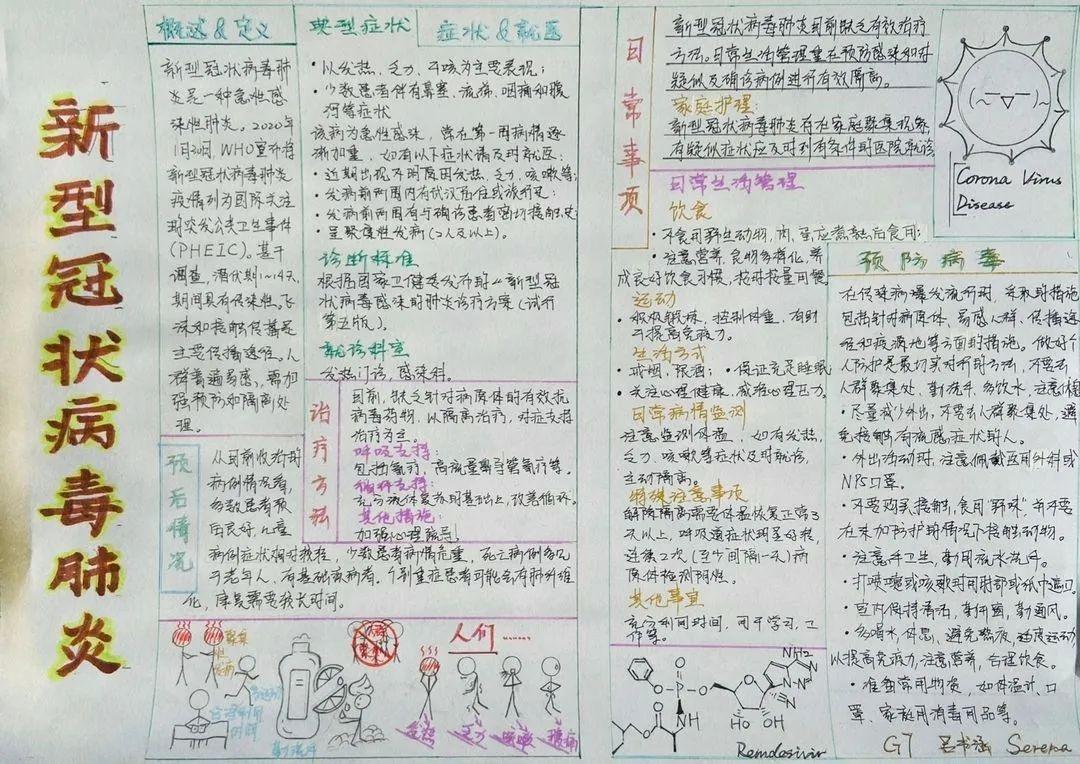 新型冠状病毒肺炎
概述 & 定义
新型冠状病毒肺
炎是一种急性感
染性肺炎。2020年
1月30日，WHO宣布将
新型冠状病毒肺炎
疫情列为国际关注
的突发公共卫生事件
(PHEIC)。基于
调查，潜伏期1~14天，
期间具有传染性。飞
沫和接触传播是
主要传播途径。人
群普遍易感，需加
强预防和隔离处
理。
预后情况
从目前收治的
病例情况看，
多数患者预
后良好，儿童
病例症状相对较轻，少数患者病情危重，死亡病例多见
于老年人、有基础疾病者，个别重症患者可能会有肺纤维
化，康复需要较长时间。
典型症状
症状 & 就医
• 以发热、乏力、干咳为主要表现；
• 少数患者伴有鼻塞、流涕、咽痛和腹
泻等症状
该病为急性感染，常在第一周病情逐
渐加重，如有以下症状请及时就医：
• 近期出现不明原因发热、乏力、咳嗽等；
• 发病前两周内有武汉居住或旅行史；
• 发病前两周有与确诊患者密切接触史；
• 呈聚集性发病(2人及以上)。
诊断标准
根据国家卫健委发布的《新型冠
状病毒感染的肺炎诊疗方案(试行
第五版)。
就诊科室
发热门诊、感染科。
治疗方法
目前，缺乏针对病原体的有效抗
病毒药物，以隔离治疗，对症支持
治疗为主。
呼吸支持：
包括氧疗，高流量鼻导管氧疗等。
循环支持：
充分液体复苏的基础上，改善循环。
其他措施：
加强心理疏导！
勤洗手
人们……
发热
乏力
咳嗽
腹痛
日常事项
新型冠状病毒肺炎目前缺乏有效治疗
方法。日常生活管理重在预防感染和对
疑似及确诊病例进行有效隔离。
家庭护理：
新型冠状病毒肺炎有在家庭聚集现象，
有疑似症状应及时到有条件的医院就诊
日常生活管理
饮食
• 不食用野生动物，肉、蛋应煮熟后食用；
• 注意营养，食物多样化，养
成良好饮食习惯，按时按量用餐
运动
• 积极锻炼，控制体重，有助
于提高免疫力。
生活方式
• 戒烟，限酒； • 保证充足睡眠
• 关注心理健康，减轻心理压力。
日常病情监测
注意监测体温，如有发热、
乏力、咳嗽等症状及时就诊，
主动隔离。
特殊注意事项
解除隔离需要体温恢复正常3
天以上，呼吸道症状明显好转，
连续2次(至少间隔一天)病
原体检测阴性。
其他事宜
充分利用时间，用于学习、工
作等。
NH₂
NH
HO
OH
Remdesivir
Corona Virus
Disease
预防病毒
在传染病爆发流行时，采取的措施
包括针对病原体、易感人群、传播途
径和疫源地等方面的措施。做好个
人防护是最切实可行的方法，不要去
人群聚集处，勤洗手，多饮水，注意休息
• 尽量减少外出，不要去人群聚集处，避
免接触有流感症状的人。
• 外出活动时，注意佩戴医用外科或
N95口罩。
• 不要购买、接触、食用“野味”，并不要
在未加防护的情况下接触动物。
• 注意手卫生，勤用流水洗手。
• 打喷嚏或咳嗽时用肘部或纸巾遮口。
• 室内保持清洁，勤打扫，勤通风。
• 多喝水，休息，避免熬夜，适度运动，
以提高免疫力，注意营养，合理饮食。
• 准备常用物资，如体温计，口
罩、家庭用消毒用品等。
G7 吕书涵 Serena